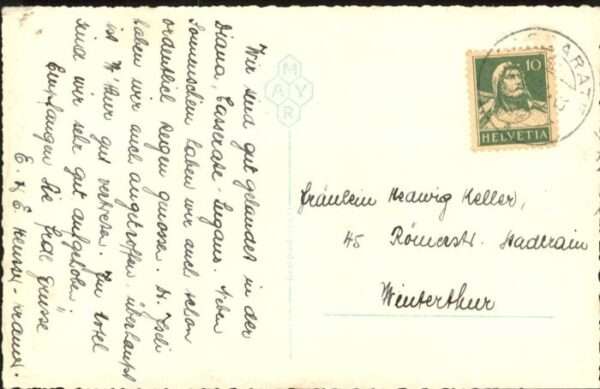 Wir sind gut gelandet in der
Diana, Cassarate-Lugano. Neben
Sonnenschein haben wir auch schon
ordentlich Regen genossen. H. Zgli
haben wir auch angetroffen, überhaupt
ist W'thur gut vertreten. Im Hotel
sind wir sehr gut aufgehoben.
Empfangen Sie frdl. Grüsse
E. & E.
MAYR
10
HELVETIA
Fräulein Hedwig Keller,
45 Römerstr. Stadtrain
Winterthur